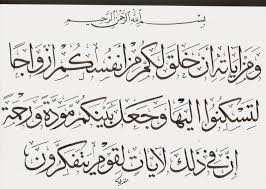 بسم الله الرحمن الرحيم
ومن آياته أن خلق لكم من أنفسكم أزواجا
لتسكنوا إليها وجعل بينكم مودة ورحمة
إن في ذلك لآيات لقوم يتفكرون